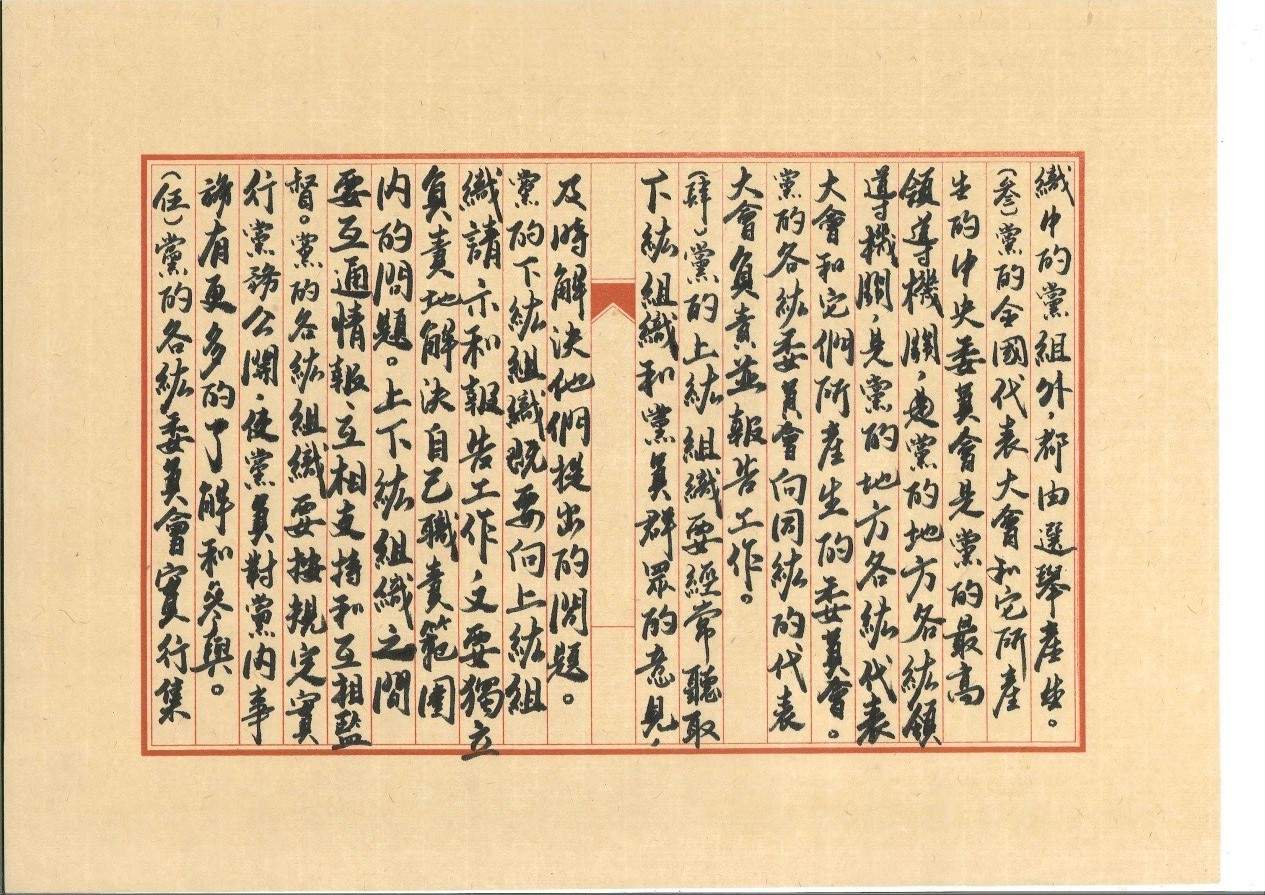 織中的黨組外，都由選舉產生。
（叁）黨的全國代表大會和它所產
生的中央委員會是黨的最高
領導機關，是黨的地方各級領
導機關，是黨的地方各級代表
大會和它們所產生的委員會。
黨的各級委員會向同級的代表
大會負責並報告工作。
（肆）黨的上級組織要經常聽取
下級組織和黨員群眾的意見，
及時解決他們提出的問題。
黨的下級組織既要向上級組
織請示和報告工作，又要獨立
負責地解決自己職責範圍
內的問題。上下級組織之間
要互通情報、互相支持和互相監
督。黨的各級組織要按規定實
行黨務公開，使黨員對黨內事
務有更多的了解和參與。
（伍）黨的各級委員會實行集